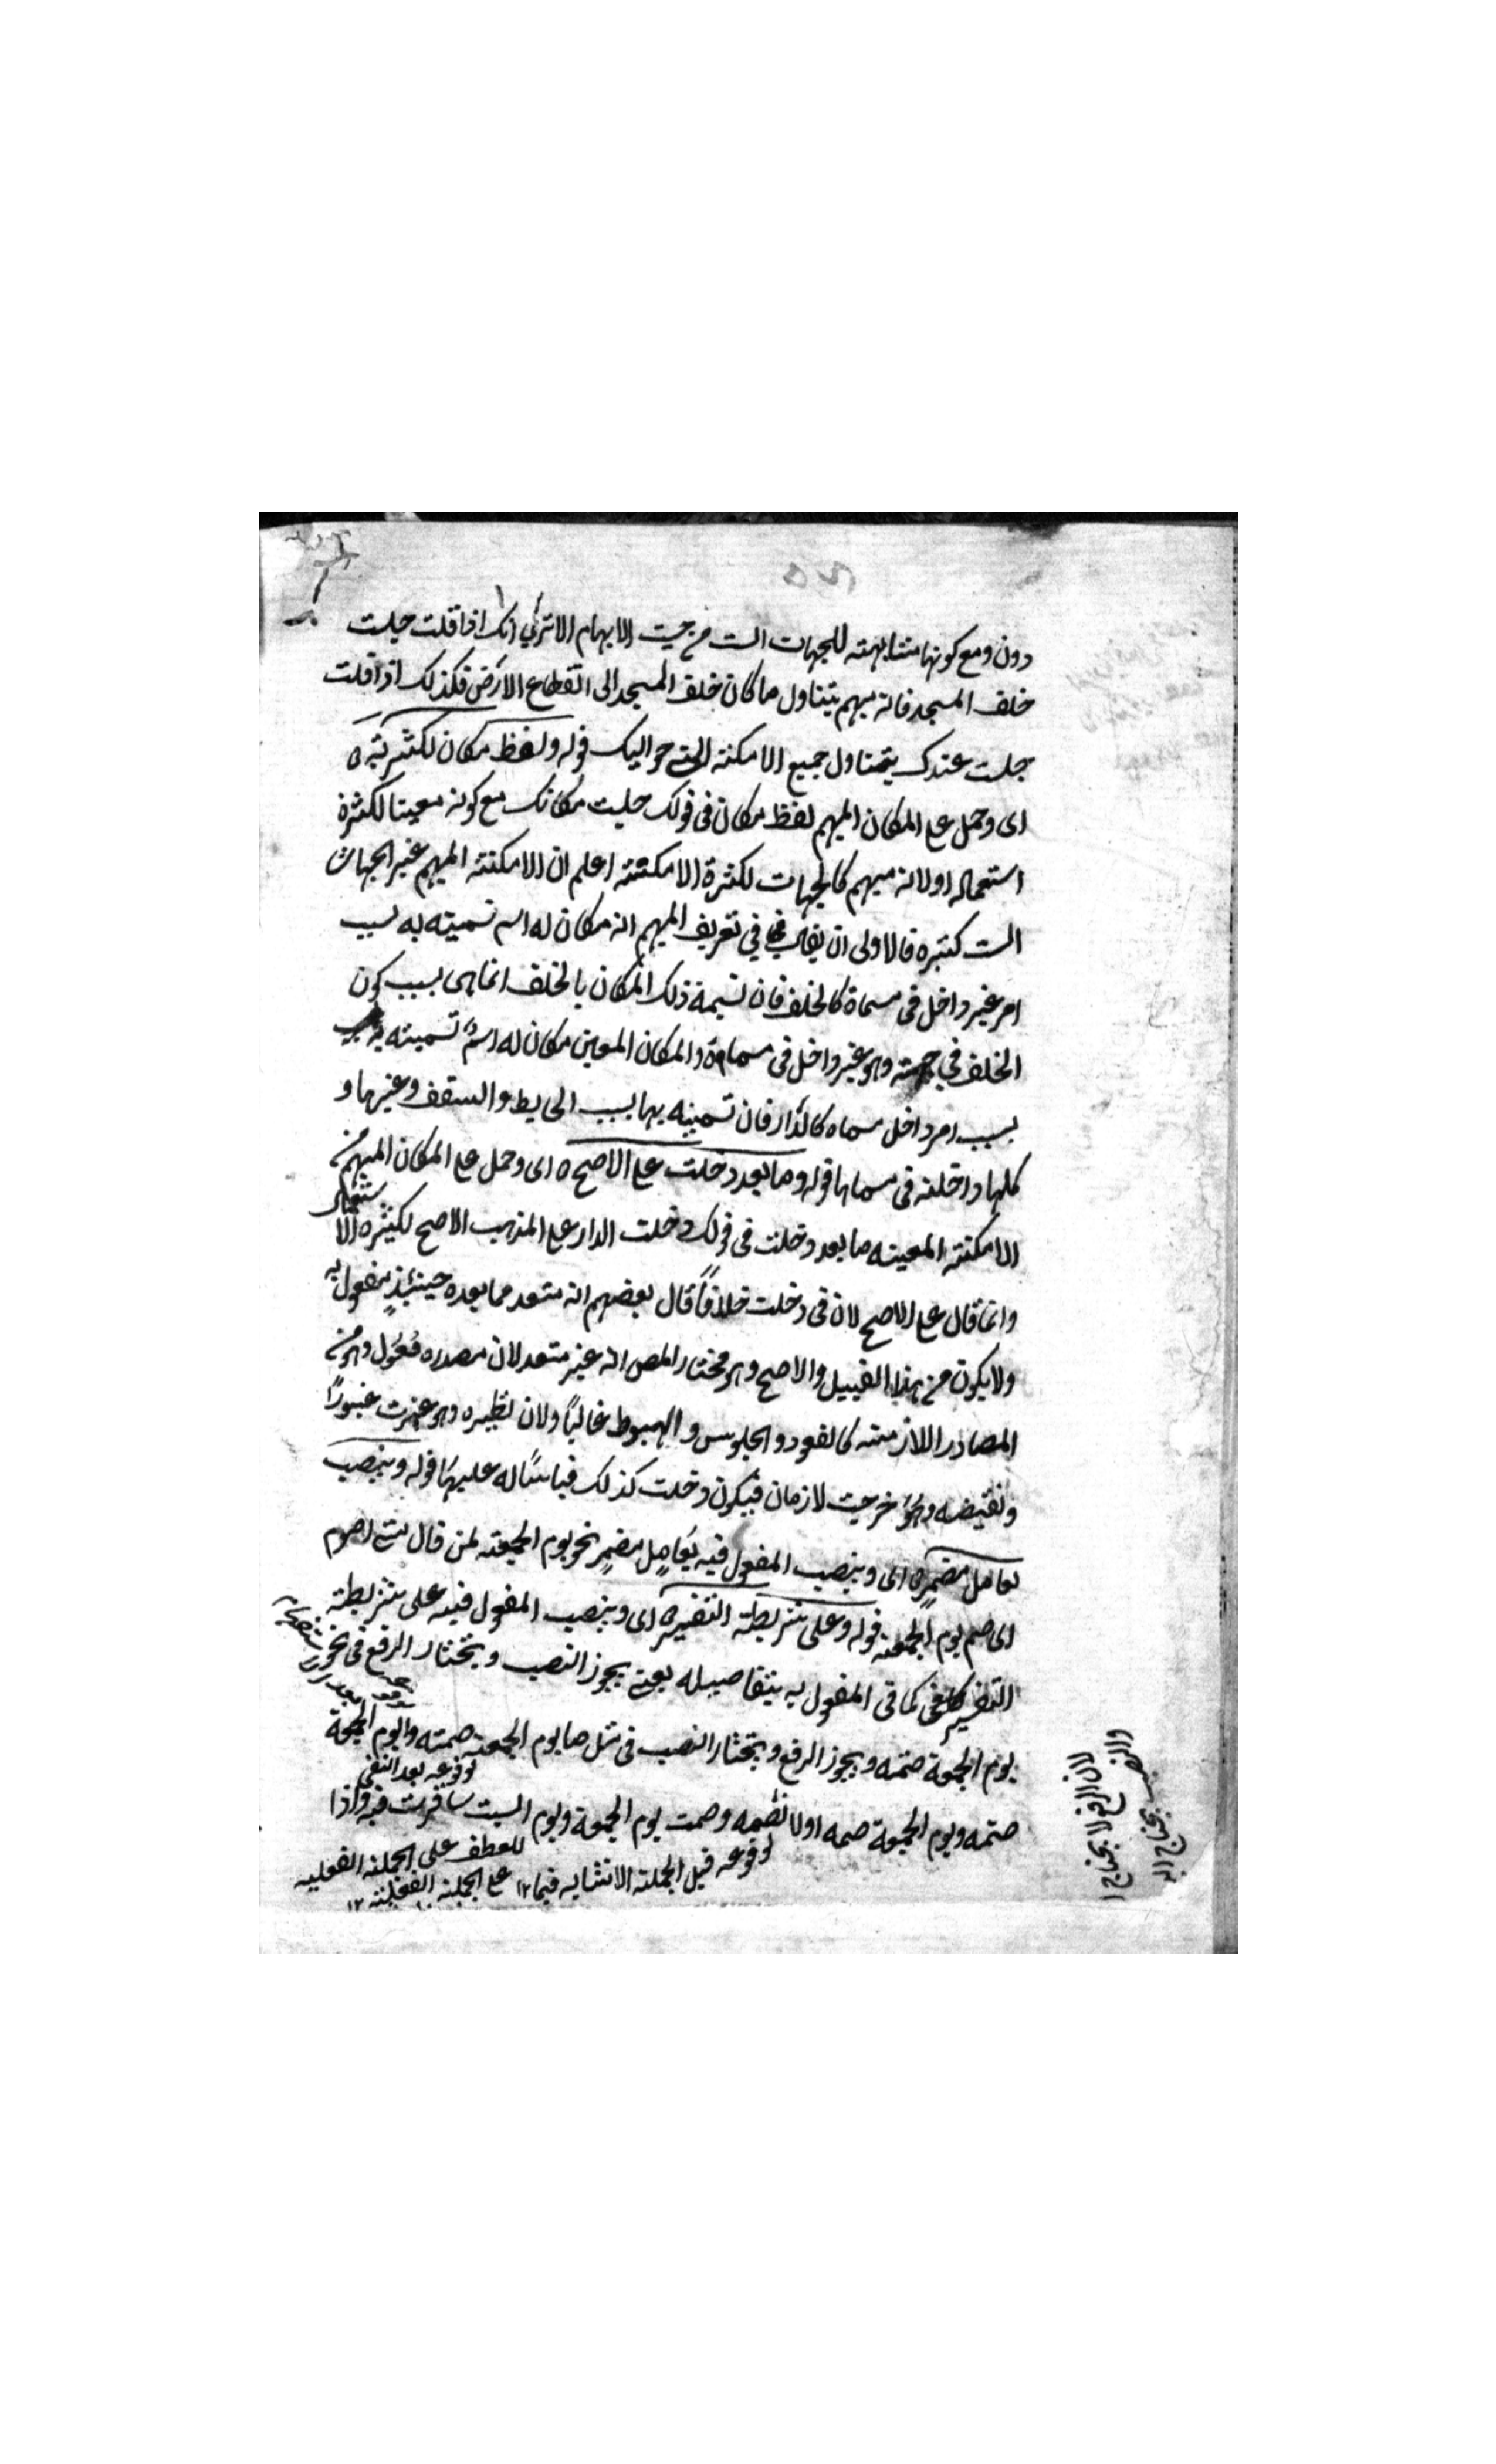 دون ومع كونها متشابهة للجهات الست من حيث الابهام الا ترى انك اذا قلت جلست
خلف المسجد فانه مبهم يتناول ما كان خلف المسجد الى انقطاع الارض فكذلك اذا قلت
جلست عندك يتناول جميع الامكنة التي حواليك قوله ولفظ مكان لكثرته
اى وحمل على المكان المبهم لفظ مكان فى قولك جلست مكانك مع كونه معينا لكثرة
استعماله او لانه مبهم كالجهات لكثرة الامكنة اعلم ان الامكنة المبهم غير الجهات
الست كثيرة فالاولى ان يقال في تعريف المبهم انه مكان له اسم تسميته به بسبب
امر غير داخل فى مسماة كالخلف فان تسمية ذلك المكان بالخلف انما هى بسبب كون
الخلف في جهته وهو غير داخل فى مسماه والمكان المعين مكان له اسمٌ تسميته به
بسبب امر داخل مسماه كالدار فان تسميته بها بسبب الحايط والسقف وغيرها و
كلها داخلة فى مسماها قوله وما بعد دخلت على الاصح اى وحمل على المكان المبهم من
الامكنة المعينه ما بعد دخلت فى قولك دخلت الدار على المذهب الاصح لكثرة الاستعمال
وانما قال على الاصح لان فى دخلت خلافاً قال بعضهم انه متعد فما بعده حينئذٍ مفعول به
ولا يكون من هذا القبيل والاصح وهو مختار المص انه غير متعد لان مصدره فُعُول وهو من
المصادر اللازمة كالقعود والجلوس والهبوط غالباً ولان نظيره وهو عبرت عبوراً
ونقيضه وهو خرجت لازمان فيكون دخلت كذلك قياساً له عليهما قوله وينصب
بعامل مضمر اى وينصب المفعول فيه بعاملٍ مضمرٍ نحو يوم الجمعة لمن قال متى اصوم
اى صم يوم الجمعة قوله وعلى شريطة التفسير اى وينصب المفعول فيه على شريطة
التفسير كما فى المفعول به بتفاصيله يعنى يجوز النصب ويختار الرفع فى نحو
يوم الجمعة صمته ويجوز الرفع ويختار النصب فى مثل ما يوم الجمعة صمته وايوم الجمعة
لوقوعه بعد النفي
صمته ويوم الجمعة صمه او لا تصمه وصمت يوم الجمعة ويوم السبت سافرت فيه واذا
لوقوعه قبل الجملة الانشايه فيما ١٢
للعطف على الجملة الفعليه
على الجملة الفعلية ١٢
لان الرفع لا يحتاج
والنصب يحتاج اليه